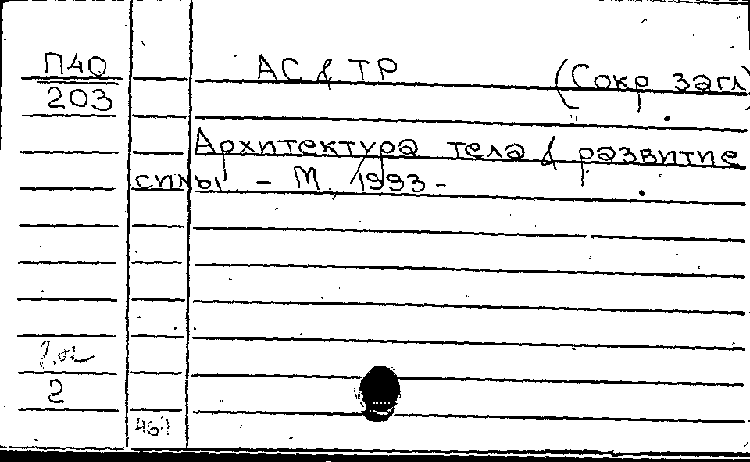 П40
203
АС & ТР (Сокр. загл)
Архитектура тела & развитие
силы - М. 1993 -
2